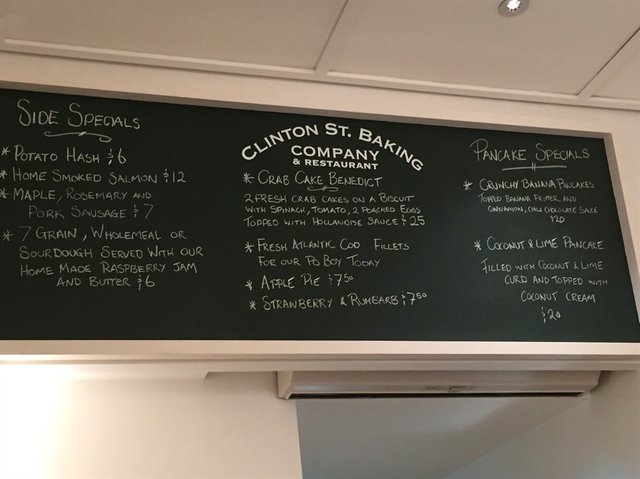 SIDE SPECIALS
* POTATO HASH $6
* HOME SMOKED SALMON $12
* MAPLE, ROSEMARY AND
PORK SAUSAGE $7
* 7 GRAIN, WHOLEMEAL OR
SOURDOUGH SERVED WITH OUR
HOME MADE RASPBERRY JAM
AND BUTTER $6
CLINTON ST. BAKING
COMPANY
& RESTAURANT
* CRAB CAKE BENEDICT
2 FRESH CRAB CAKES ON A BISCUIT
WITH SPINACH, TOMATO, 2 POACHED EGGS
TOPPED WITH HOLLANDISE SAUCE $25
* FRESH ATLANTIC COD FILLETS
FOR OUR PO BOY TODAY
* APPLE PIE $7.50
* STRAWBERRY & RUHBARB $7.50
PANCAKE SPECIALS
* CRUNCHY BANANA PANCAKES
TOPPED BANANA FRITER AND
CINNAMON, CHILI CHOCOLATE SAUCE
$20
* COCONUT & LIME PANCAKE
FILLED WITH COCONUT & LIME
CURD AND TOPPED WITH
COCONUT CREAM
$20